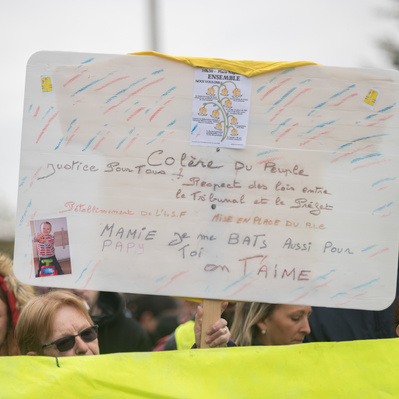 ENSEMBLE
Colère Du Peuple
Justice Pour Tous
Respect des lois entre
le Tribunal et le Préfet
Rétablissement De L'I.S.F
MISE EN PLACE DU RIC
MAMIE je me BATS AUSSI POUR
PAPY
Toi
on T'AIME